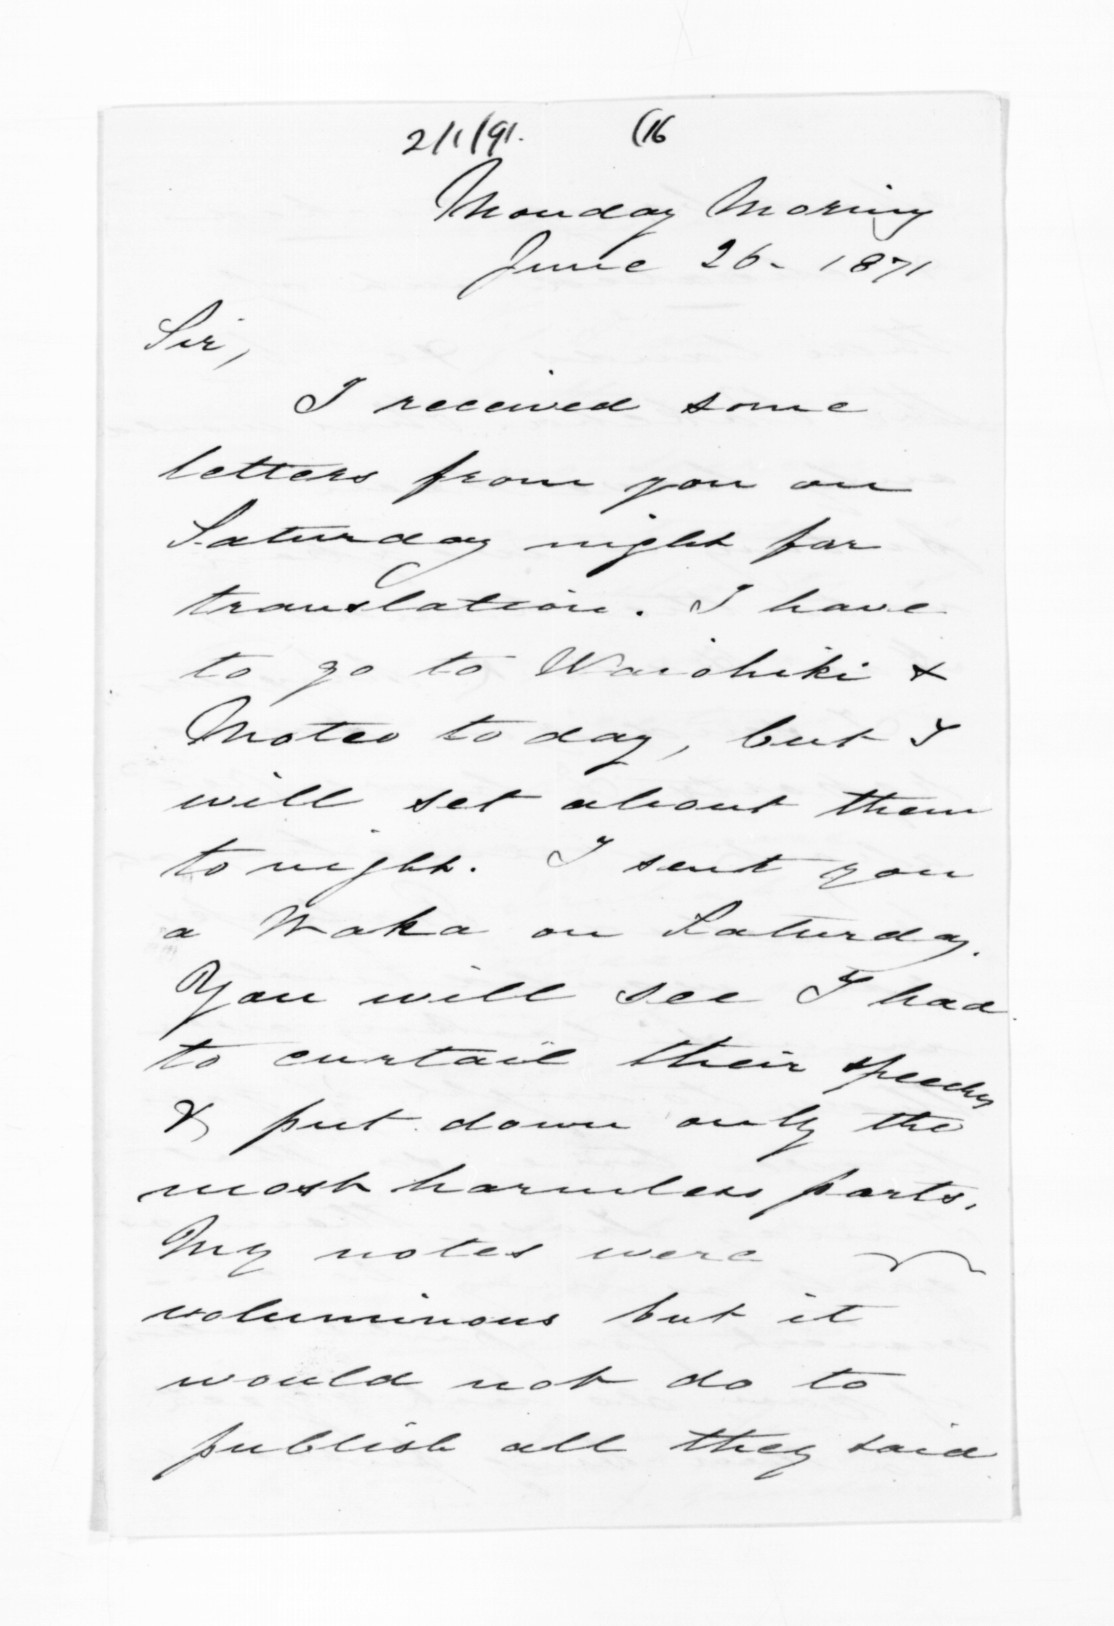 2/1/91. (16
Monday Morning
June 26. 1871
Sir,
I received some
letters from you on
Saturday night for
translation. I have
to go to Waiohiki &
Moteo today, but I
will set about them
to night. I sent you
a Waka on Saturday.
You will see I had
to curtail their speeches
& put down only the
most harmless parts.
My notes were
voluminous but it
would not do to
publish all they said